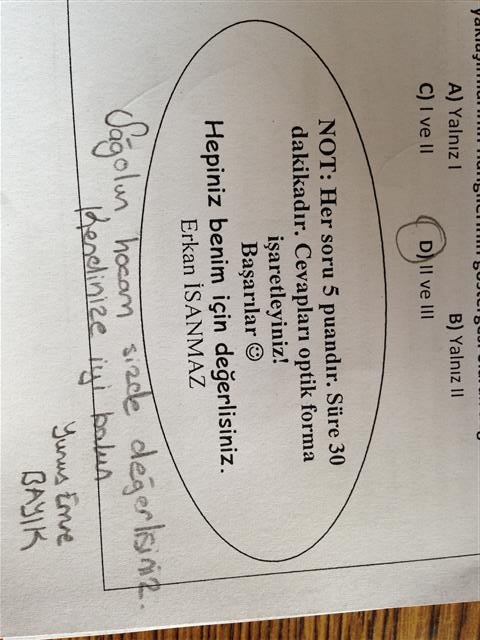 A) Yalnız I
B) Yalnız II
C) I ve II
D) II ve III
NOT: Her soru 5 puandır. Süre 30
dakikadır. Cevapları optik forma
işaretleyiniz!
Başarılar ☺
Hepiniz benim için değerlisiniz.
Erkan İSANMAZ
Sağolun hocam sizde değerlisiniz.
Kendinize iyi bakın
Yunus Emre
BAYIK